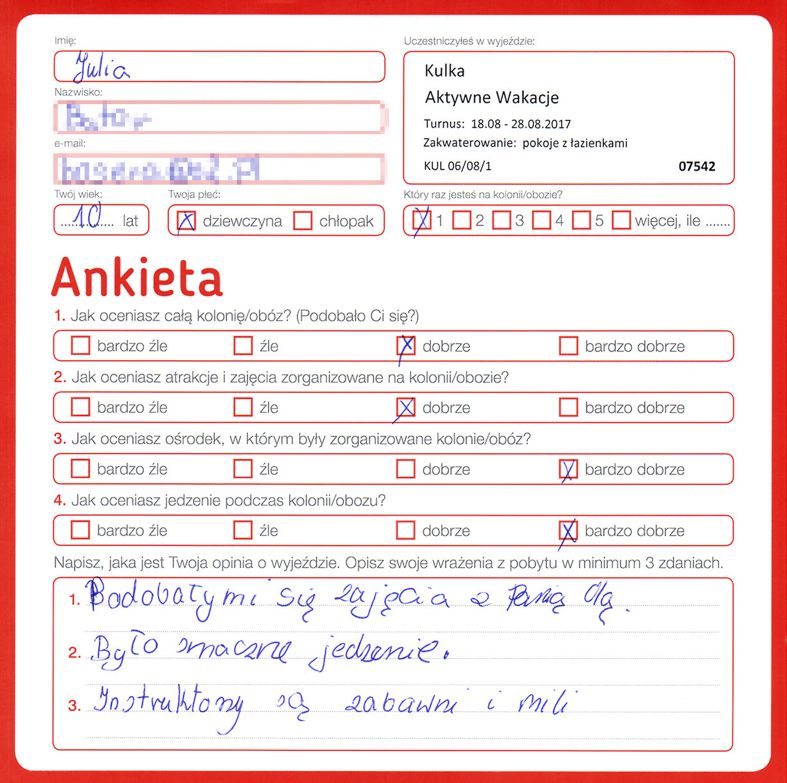 Imię:
Julia
Nazwisko:
e-mail:
Twój wiek:
10 lat
Twoja płeć:
dziewczyna chłopak
Uczestniczyłeś w wyjeździe:
Kulka
Aktywne Wakacje
Turnus: 18.08 - 28.08.2017
Zakwaterowanie: pokoje z łazienkami
KUL 06/08/1 07542
Który raz jesteś na kolonii/obozie?
1 2 3 4 5 więcej, ile .......
Ankieta
1. Jak oceniasz całą kolonię/obóz? (Podobało Ci się?)
bardzo źle źle dobrze bardzo dobrze
2. Jak oceniasz atrakcje i zajęcia zorganizowane na kolonii/obozie?
bardzo źle źle dobrze bardzo dobrze
3. Jak oceniasz ośrodek, w którym były zorganizowane kolonie/obóz?
bardzo źle źle dobrze bardzo dobrze
4. Jak oceniasz jedzenie podczas kolonii/obozu?
bardzo źle źle dobrze bardzo dobrze
Napisz, jaka jest Twoja opinia o wyjeździe. Opisz swoje wrażenia z pobytu w minimum 3 zdaniach.
1. Podobały mi się zajęcia z Panią Olą.
2. Było smaczne jedzenie.
3. Instruktorzy są zabawni i mili